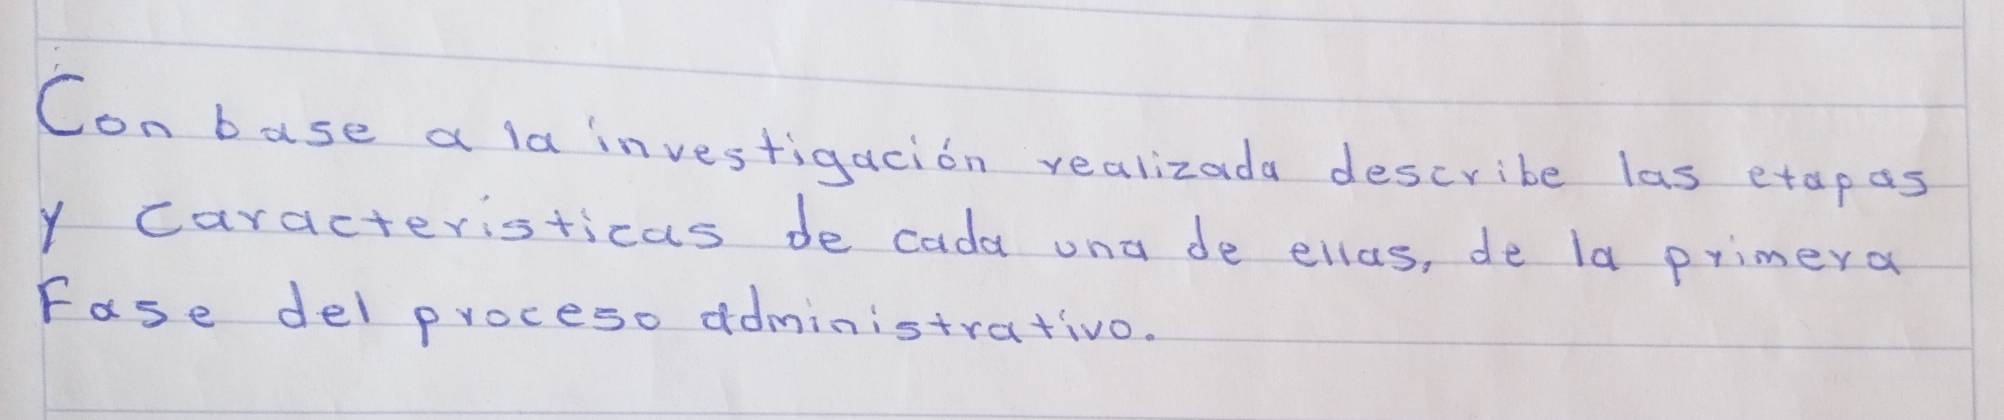 Con base a la investigación realizada describe las etapas
y caracteristicas de cada una de ellas, de la primera
Fase del proceso administrativo.